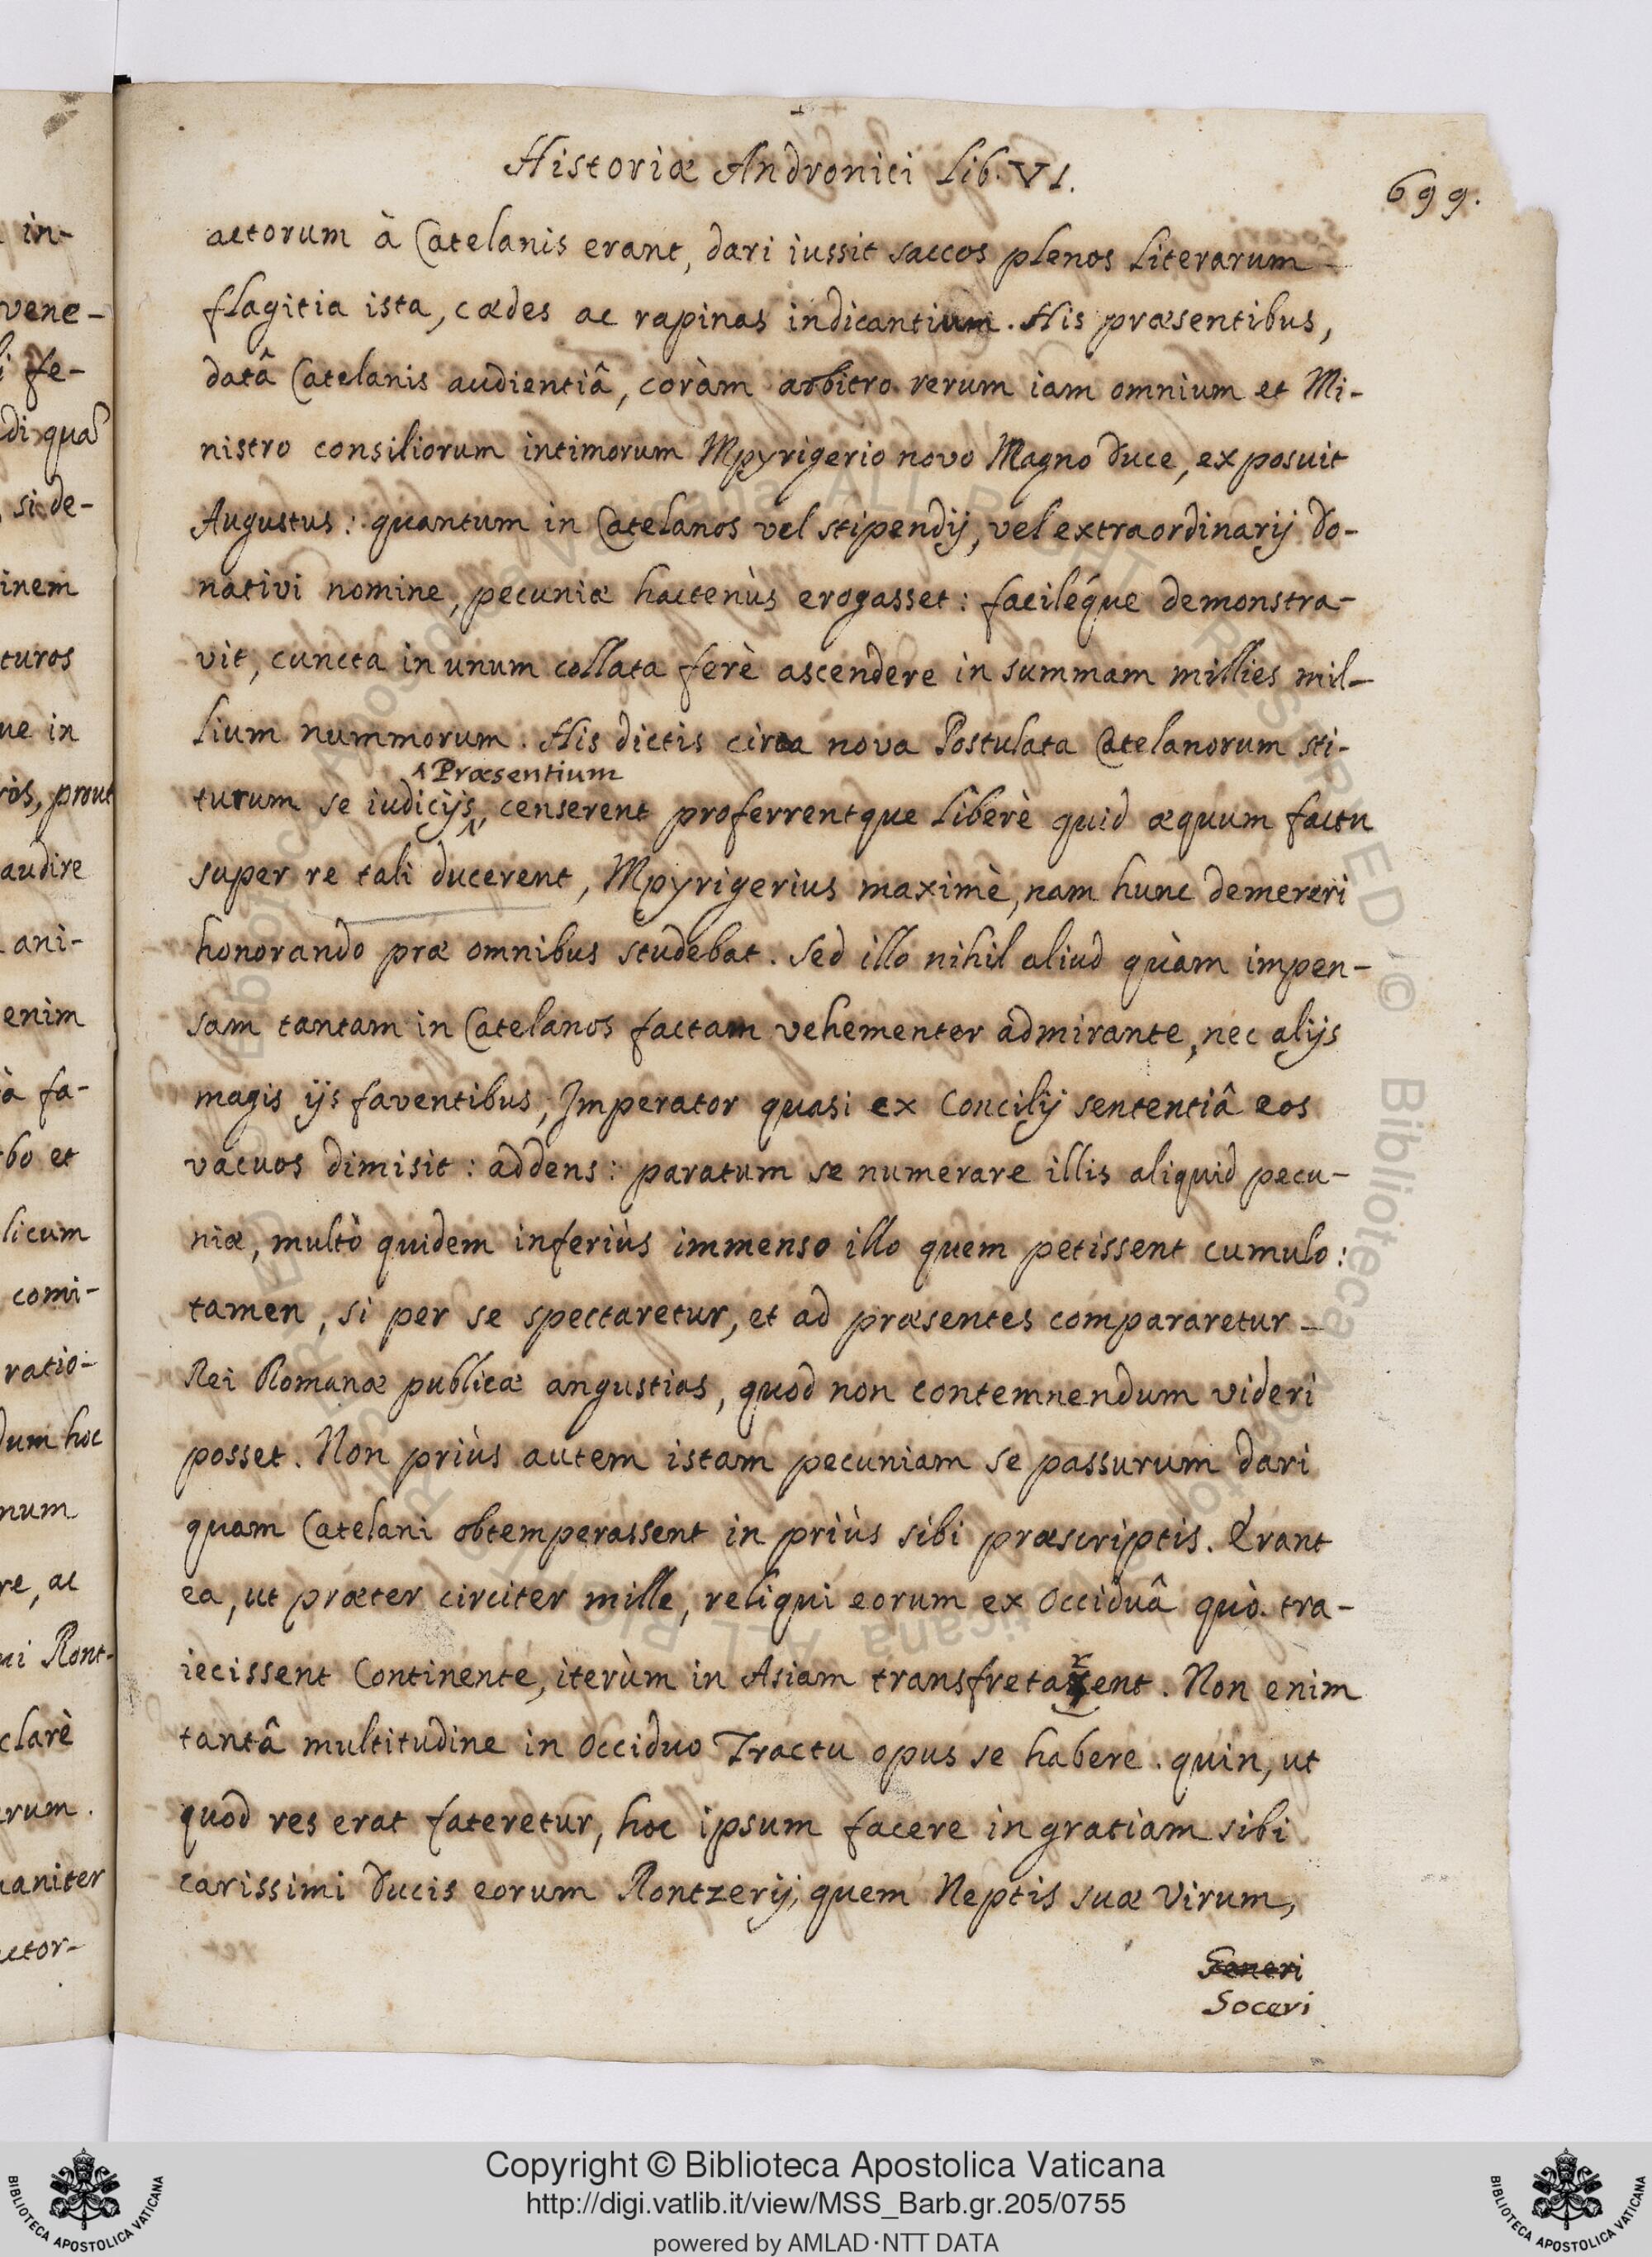 Historiæ Andronici Lib. VI.
699.
actorum à Catelanis erant, dari iussit saccos plenos literarum
flagitia ista, cædes ac rapinas indicantium. His præsentibus,
datâ Catelanis audientiâ, coràm arbitro rerum iam omnium et Mi-
nistro consiliorum intimorum Mpyrigerio novo Magno Duce, exposuit
Augustus: quantum in Catelanos vel stipendij, vel extraordinarij do-
nativi nomine, pecuniæ hactenùs erogasset: faciléque demonstra-
vit, cuncta in unum collata ferè ascendere in summam millies mil-
lium nummorum. His dictis circa nova Postulata Catelanorum sti-
^ Præsentium
turum se iudicijs, censerent proferrentque liberè quid æquum factu
super re tali ducerent, Mpyrigerius maximè, nam hunc demereri
honorando præ omnibus studebat. Sed illo nihil aliud quàm impen-
sam tantam in Catelanos factam vehementer admirante, nec alijs
magis ijs faventibus, Imperator quasi ex Concilij sententiâ eos
vacuos dimisit: addens: paratum se numerare illis aliquid pecu-
niæ, multò quidem inferiùs immenso illo quem petissent cumulo:
tamen, si per se spectaretur, et ad præsentes compararetur
Rei Romanæ publicæ angustias, quod non contemnendum videri
posset. Non priùs autem istam pecuniam se passurum dari
quam Catelani obtemperassent in priùs sibi præscriptis. Erant
ea, ut præter circiter mille, reliqui eorum ex Occiduâ quò tra-
iecissent Continente, iterùm in Asiam transfretarent. Non enim
tantâ multitudine in Occiduo Tractu opus se habere. quin, ut
quod res erat fateretur, hoc ipsum facere in gratiam sibi
carissimi Ducis eorum Rontzerij, quem Neptis suæ Virum,
Generi
Soceri
in-
vene-
i fe-
di qua
si de-
inem
turos
ue in
ros, prout
audire
ani-
enim
à fa-
bo et
licum
comi-
ratio-
dum hoc
num
re, ac
ni Ront-
clarè
rum.
aniter
ctor-
Copyright © Biblioteca Apostolica Vaticana
http://digi.vatlib.it/view/MSS_Barb.gr.205/0755
powered by AMLAD·NTT DATA
BIBLIOTECA APOSTOLICA VATICANA
BIBLIOTECA APOSTOLICA VATICANA